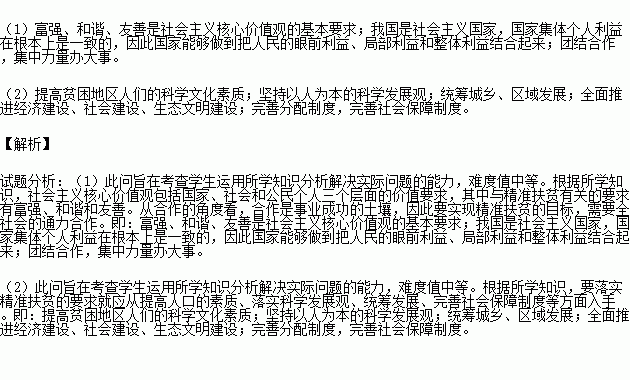 （1）富强、和谐、友善是社会主义核心价值观的基本要求；我国是社会主义国家，国家集体个人利益
在根本上是一致的，因此国家能够做到把人民的眼前利益、局部利益和整体利益结合起来；团结合作
，集中力量办大事。
（2）提高贫困地区人们的科学文化素质；坚持以人为本的科学发展观；统筹城乡、区域发展；全面推
进经济建设、社会建设、生态文明建设；完善分配制度，完善社会保障制度。
【解析】
试题分析：（1）此问旨在考查学生运用所学知识分析解决实际问题的能力，难度值中等。根据所学知
识，社会主义核心价值观包括国家、社会和公民个人三个层面的价值要求，其中与精准扶贫有关的要求
有富强、和谐和友善。从合作的角度看，合作是事业成功的土壤，因此要实现精准扶贫的目标，需要全
社会的通力合作。即：富强、和谐、友善是社会主义核心价值观的基本要求；我国是社会主义国家，国
家集体个人利益在根本上是一致的，因此国家能够做到把人民的眼前利益、局部利益和整体利益结合起
来；团结合作，集中力量办大事。
（2）此问旨在考查学生运用所学知识分析解决实际问题的能力，难度值中等。根据所学知识，要落实
精准扶贫的要求就应从提高人口的素质、落实科学发展观、统筹发展、完善社会保障制度等方面入手
。即：提高贫困地区人们的科学文化素质；坚持以人为本的科学发展观；统筹城乡、区域发展；全面推
进经济建设、社会建设、生态文明建设；完善分配制度，完善社会保障制度。